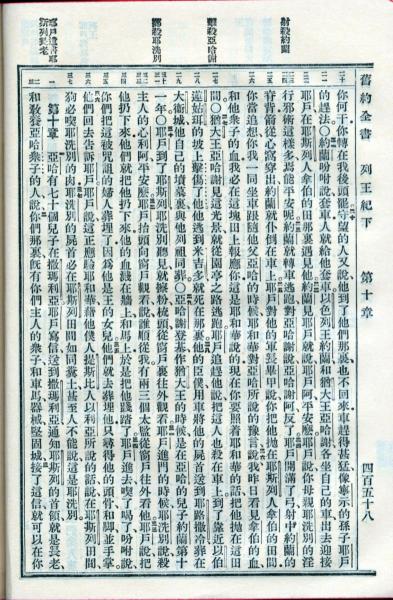 舊約全書 列王紀下 第十章 四百五十八
射殺約蘭
擊殺亞哈謝
擲殺耶洗別
你何干你轉在我後頭罷守望的人又說他到了他們那裏也不回來車趕得甚猛像寧示的孫子耶戶
的趕法○約蘭吩咐說套車人就給他套車以色列王約蘭和猶大王亞哈謝各坐自己的車出去迎接
耶戶在耶斯列人拿伯的田那裏遇見他約蘭見耶戶就說耶戶平安麼耶戶說你母親耶洗別的淫
行邪術這樣多焉能平安呢約蘭就轉車逃跑對亞哈謝說亞哈謝阿反了耶戶開滿了弓射中約蘭的
脊背箭從心窩穿出約蘭就仆倒在車上耶戶對他的軍長畢甲說你把他拋在耶斯列人拿伯的田間
你當追想你我一同坐車跟隨他父亞哈的時候耶和華對亞哈所說的豫言說我昨日看見拿伯的血
和他衆子的血我必在這塊田上報應你這是耶和華說的現在你要照着耶和華的話把他拋在這田
間○猶大王亞哈謝見這光景就從園亭之路逃跑耶戶追趕他說把這人也殺在車上到了靠近以伯
蓮姑珥的坡上擊傷了他他逃到米吉多就死在那裏他的臣僕用車將他的屍首送到耶路撒冷葬在
大衛城他自己的墳墓裏與他列祖同葬○亞哈謝登基作猶大王的時候是在亞哈的兒子約蘭第十
一年○耶戶到了耶斯列耶洗別聽見就擦粉梳頭從窗戶裏往外觀看耶戶進門的時候耶洗別說殺
主人的心利阿平安麼耶戶抬頭向窗戶觀看說誰順從我有兩三個太監從窗戶往外看他耶戶說把
他扔下來他們就把他扔下來他的血濺在牆上和馬上於是把他踐踏了耶戶進去喫了喝了吩咐說
你們把這被咒詛的婦人葬埋了因爲他是王的女兒他們就去葬埋他只尋得他的頭骨和脚並手掌
他們回去告訴耶戶耶戶說這正應驗耶和華藉他僕人提斯比人以利亞所說的話說在耶斯列田間
狗必喫耶洗別的肉耶洗別的屍首必在耶斯列田間如同糞土甚至人不能說這是耶洗別
第十章 亞哈有七十個兒子在撒瑪利亞耶戶寫信送到撒瑪利亞通知耶斯列的首領就是長老
和敎養亞哈衆子的人說你們那裏旣有你們主人的衆子和車馬器械堅固城接了這信就可以在你